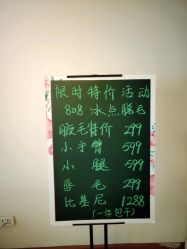 限时特价活动
808冰点脱毛
腋毛特价 299
小手臂 599
小腿 599
唇毛 299
比基尼 1288
(一年包干)